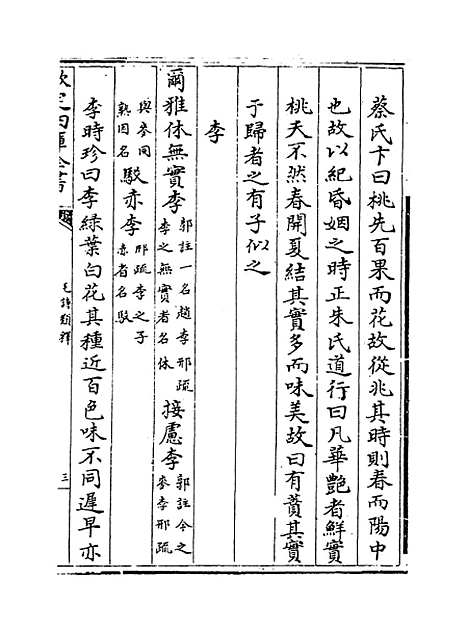 蔡氏卞曰桃先百果而花故從兆其時則春而陽中
也故以紀昏姻之時正朱氏道行曰凡華艶者鮮實
桃夭不然春開夏結其實多而味美故曰有蕡其實
于歸者之有子似之
李
爾雅休無實李郭註一名趙李邢疏李之無實者名休接慮李郭註今之麥李邢疏
與麥同熟因名駁赤李邢疏李之子赤者名駁
李時珍曰李緑葉白花其種近百色味不同遲早亦
欽定四庫全書
毛詩類釋
三